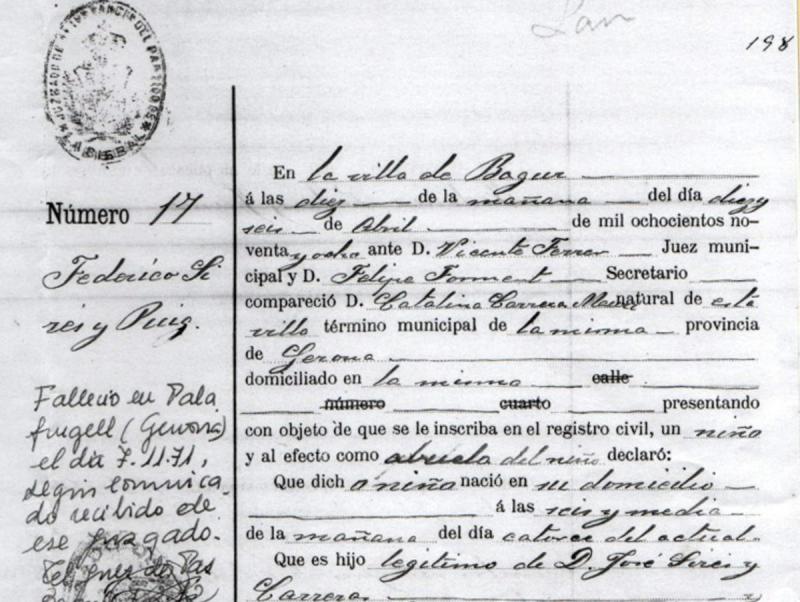 JUZGADO DE
LA BISBAL
198
Número 17
Federico Si
res y Puig.
Falleció en Pala
frugell (Gerona)
el día 7.11.71,
según comunica-
do recibido de
ese Juzgado.
El Juez de Pas
En la villa de Bagur
á las diez de la mañana del día diez y
seis de Abril de mil ochocientos no-
venta y ocho ante D. Vicente Ferrer Juez muni-
cipal y D. Felipe Forment Secretario
compareció D. Catalina Carreras natural de esta
villa término municipal de la misma provincia
de Gerona
domiciliado en la misma calle
número cuarto presentando
con objeto de que se le inscriba en el registro civil, un niño
y al efecto como abuela del niño declaró:
Que dich o niño nació en su domicilio
á las seis y media
de la mañana del día catorce del actual.
Que es hijo legítimo de D. José Sires y
Carreras